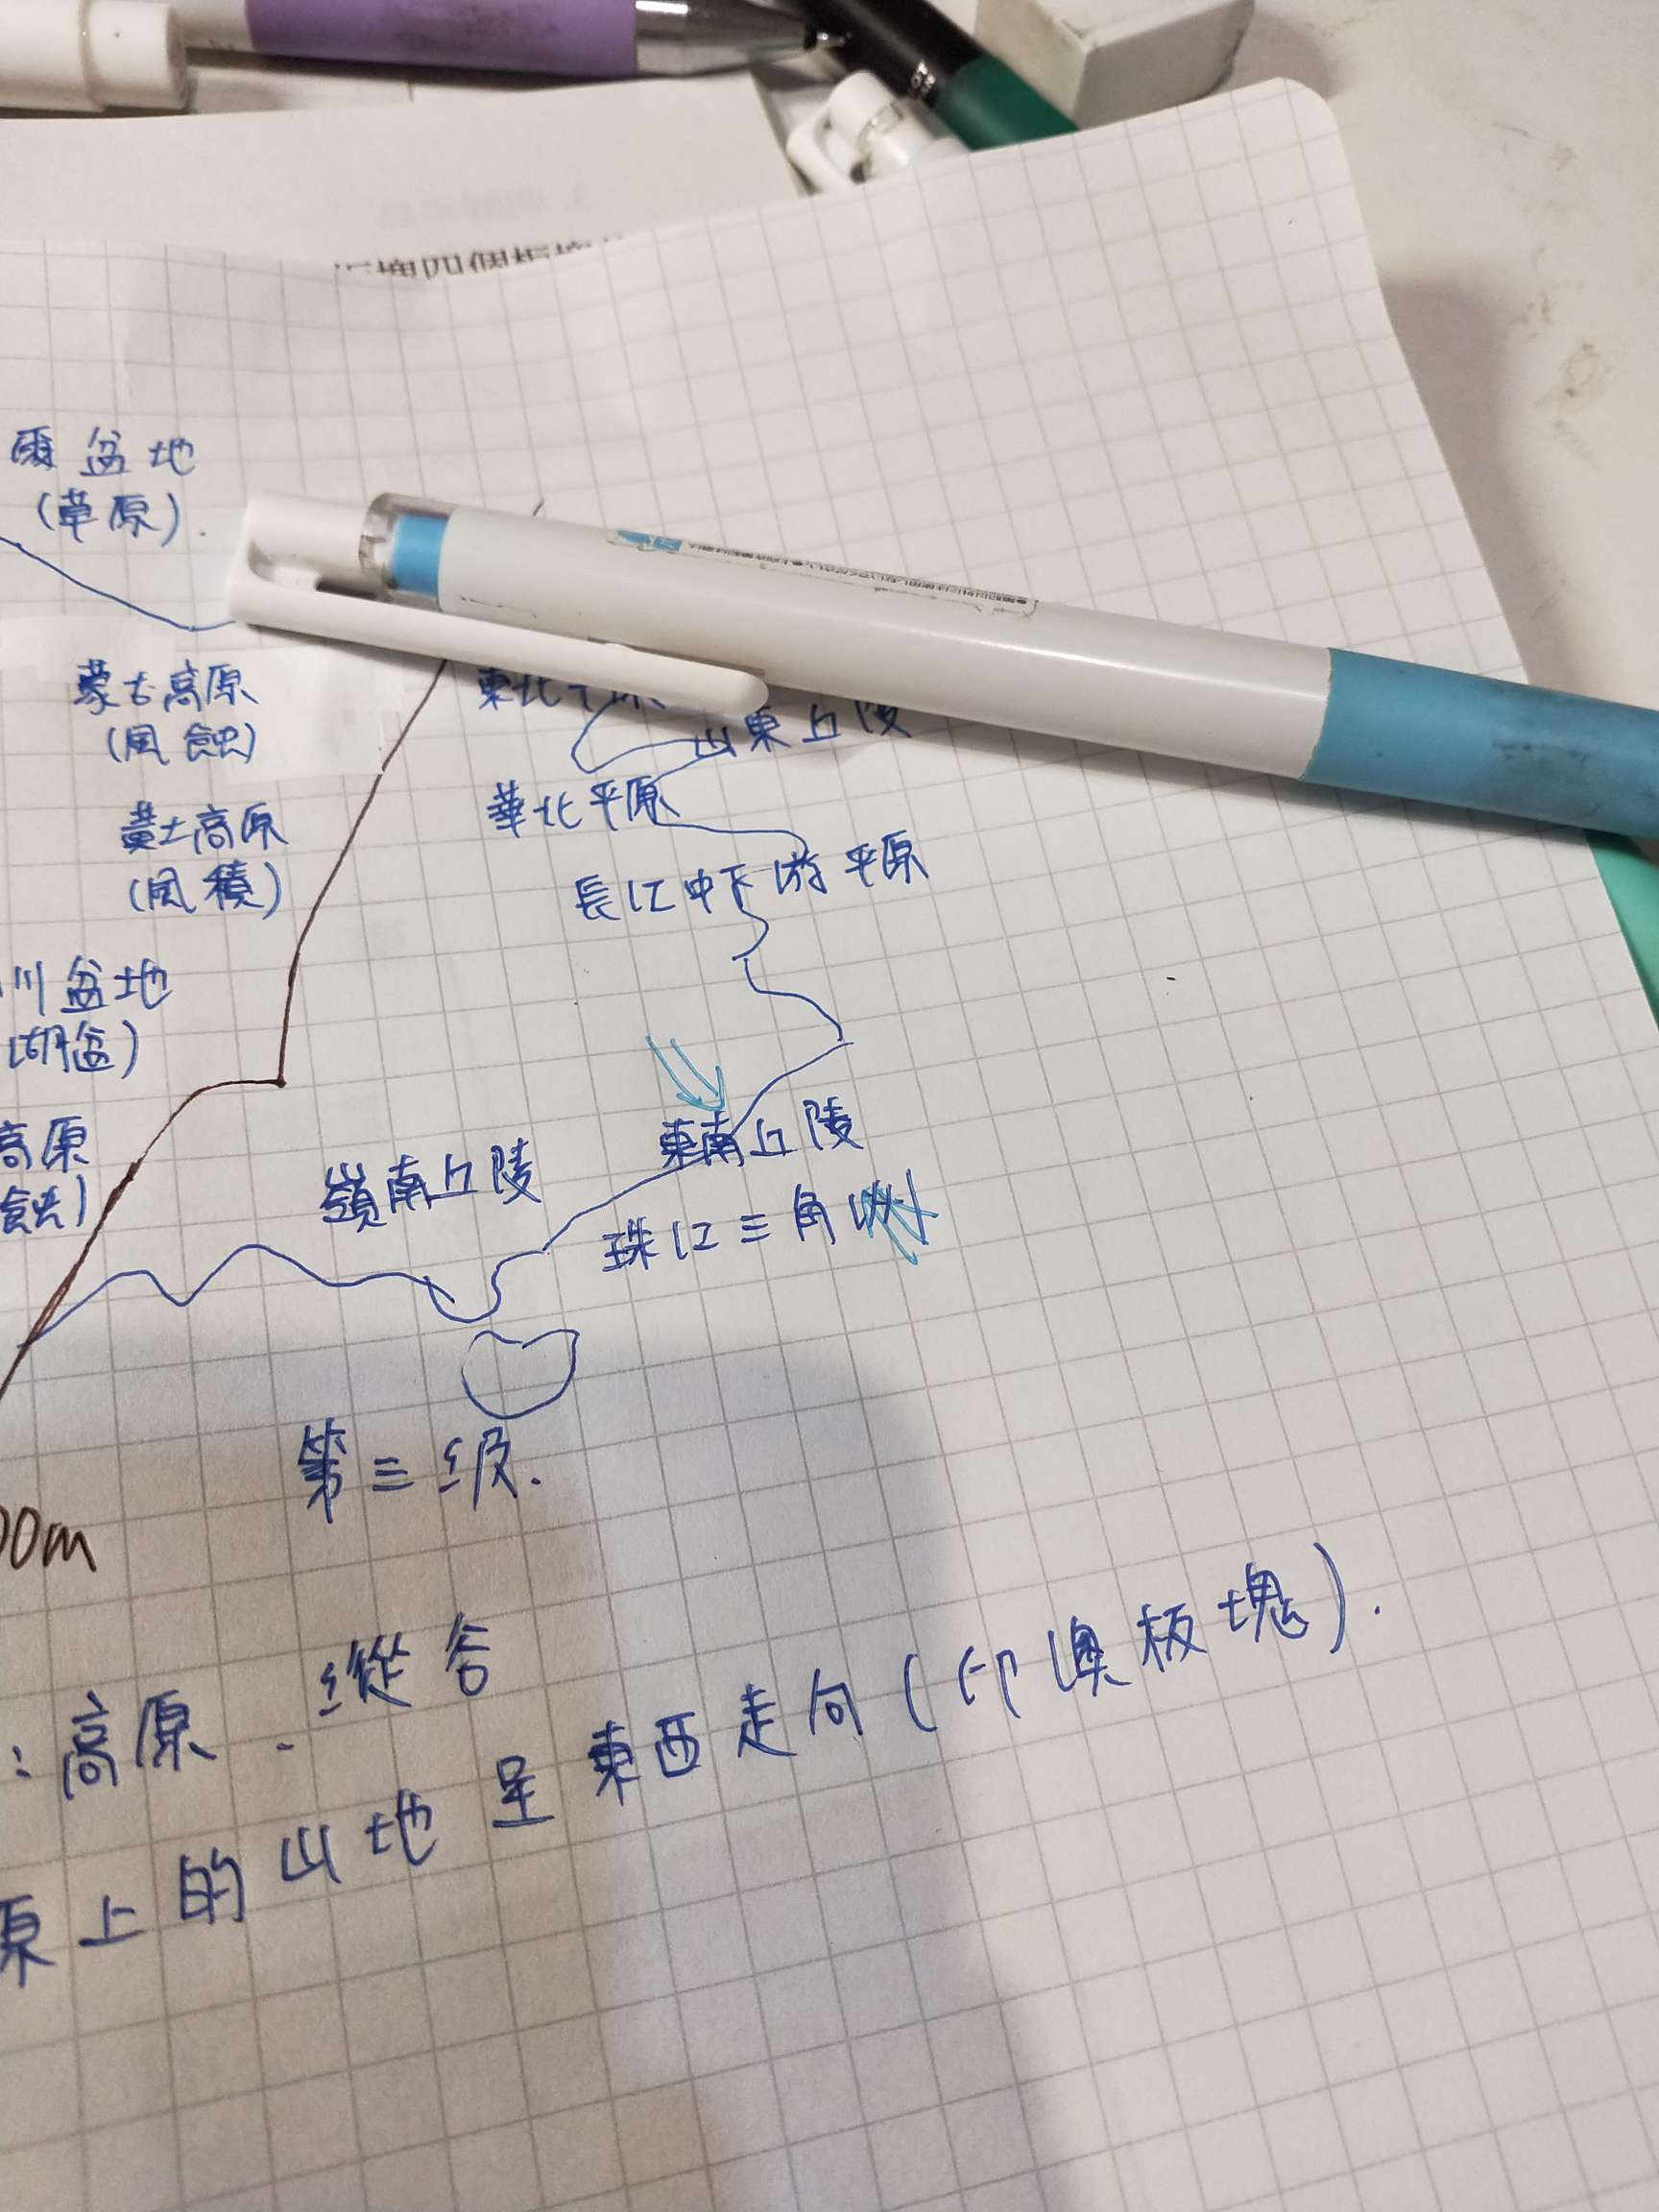 爾盆地
(草原).
蒙古高原
(風蝕)
東北平原
山東丘陵
黃土高原
(風積)
華北平原
長江中下游平原
川盆地
湖盆)
高原
蝕)
嶺南丘陵
東南丘陵
珠江三角洲
第三級.
00m
:高原、縱谷
原上的山地呈東西走向(印澳板塊).